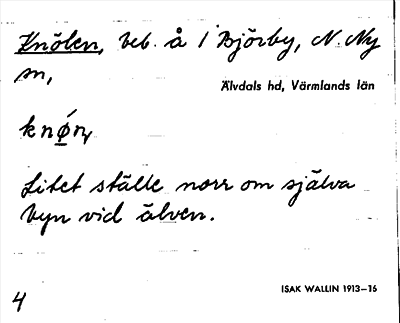 Knölen, beb. å i Björby, N. Ny
sn,
Älvdals hd, Värmlands län
Litet ställe norr om själva
byn vid älven.
ISAK WALLIN 1913–16
4